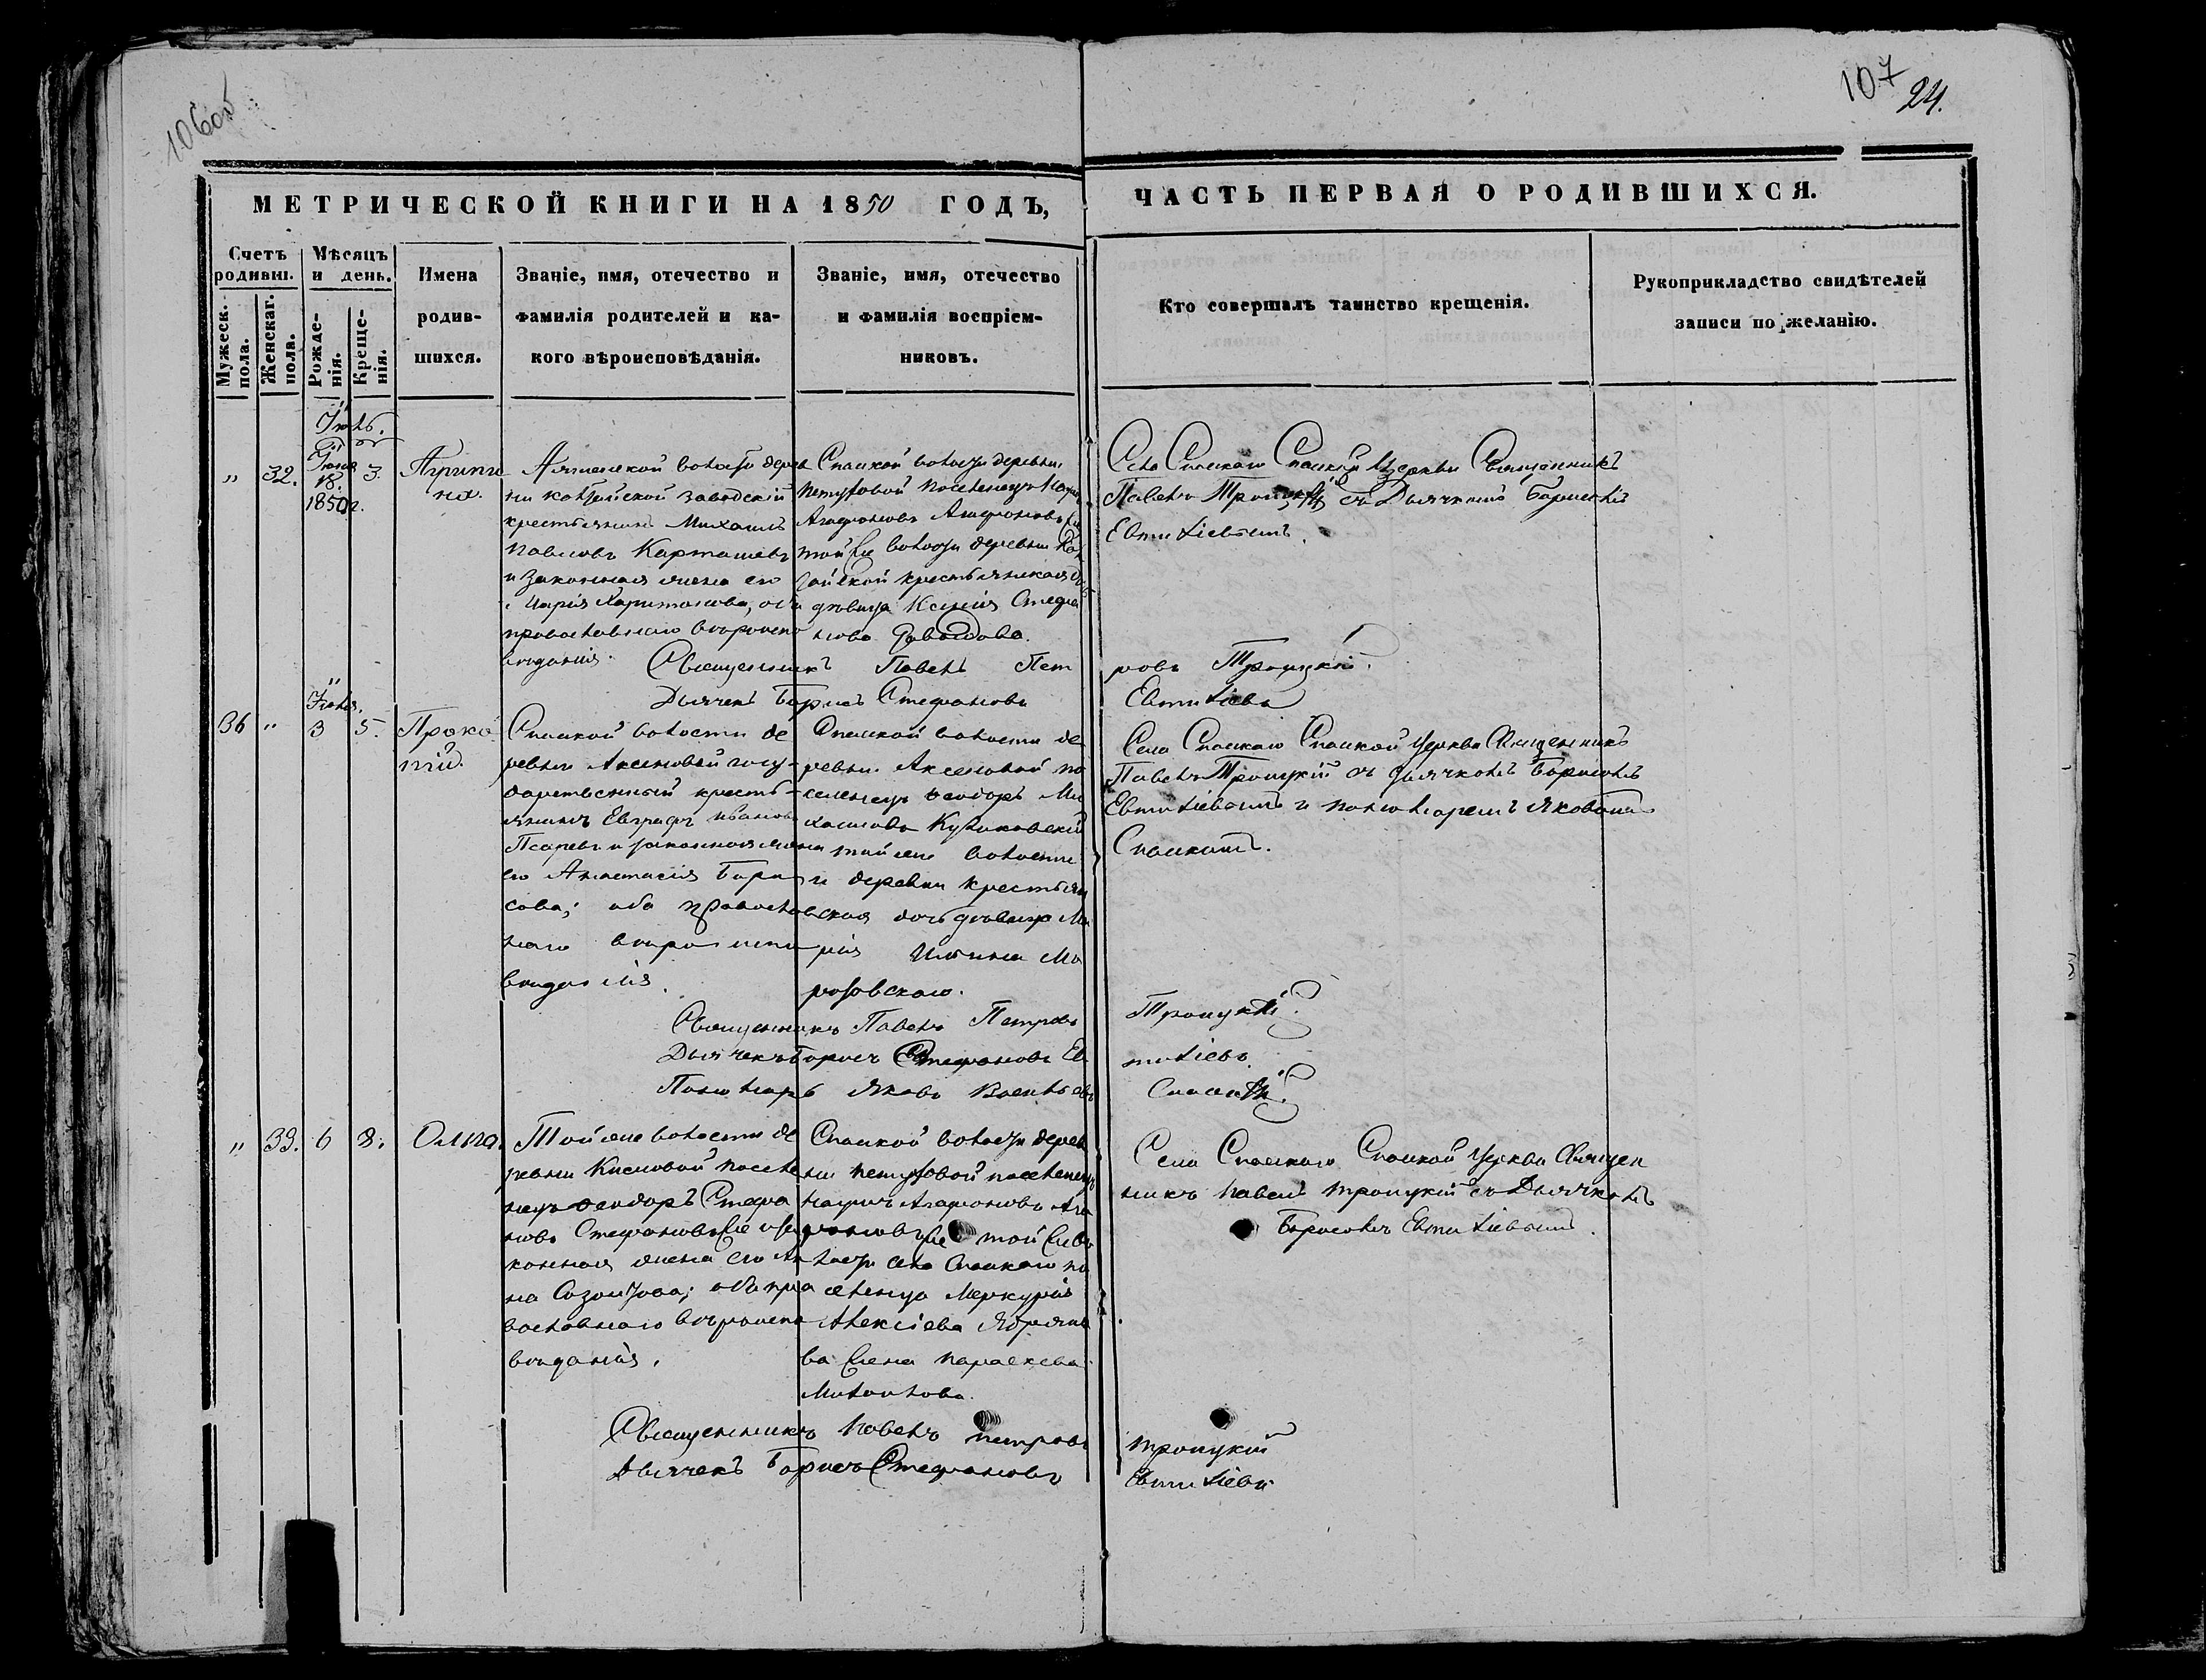 106об
107
24.
МЕТРИЧЕСКОЙ КНИГИ НА 1850 ГОДЪ,
ЧАСТЬ ПЕРВАЯ О РОДИВШИХСЯ.
Счетъ родивш.
Мужеск. пола.
Женскаг. пола.
Мѣсяцъ и день.
Рожденія.
Крещенія.
Имена родившихся.
Званіе, имя, отечество и фамилія родителей и какого вѣроисповѣданія.
Званіе, имя, отечество и фамилія воспріемниковъ.
Кто совершалъ таинство крещенія.
Рукоприкладство свидѣтелей записи по желанію.
Іюль.
" 32.
Іюня
18.
1850г.
3.
Агрипи
на.
волости дерев
ни заводскій
крестьянинъ Михаилъ
Павловъ Карташевъ
и законная жена его
Марія Харитонова, оба
православнаго вѣроиспо
вѣданія.
Спаской волости деревни
Петуховой поселенецъ
Агафоновъ Агафоновъ
той же волости деревни
крестьянская
дѣвица Ксенія Стефа
нова
Села Спаскаго Спаской Церкви Священникъ
Павелъ Троицкій съ Дьячкомъ Борисомъ
Евтихіевымъ.
Священникъ Павелъ Пет
ровъ Троицкій.
Дьячекъ Борисъ Стефановъ
Евтихіевъ
36 "
Іюля.
3 5.
Проко
пій.
Спаской волости де
ревни Аксеновой госу-
дарственный кресть-
янинъ Евграфъ Ивановъ
Псаревъ и законная жена
его Анастасія Бори
сова; оба православ
наго вѣроиспо
вѣданія.
Спаской волости де
ревни Аксеновой по
селенецъ Феодоръ Ми
хаиловъ Куликовскій
той же волости
и деревни крестьян
ская дочь дѣвица Ма
рія Ильина Мо
розовскаго.
Села Спаскаго Спаской церкви Священникъ
Павелъ Троицкій съ дьячкомъ Борисомъ
Евтихіевымъ и пономаремъ Яковомъ
Спаскимъ.
Священникъ Павелъ Петровъ
Троицкій.
Дьячекъ Борисъ Стефановъ Ев
тихіевъ.
Пономарь Яковъ Васильевъ
Спаскій.
" 39. 6 8.
Ольга.
Той же волости де
ревни Кисловой поселе
нецъ Феодоръ Стефа
новъ Стефановъ же и за
конная жена его Ан
на Созонтова; оба пра
вославнаго вѣроиспо
вѣданія.
Спаской волости дерев
ни Петуховой поселенецъ
Агафоновъ Ага
фоновъ же той же во
лости села Спаскаго по
селенца Меркурія
Алексіева
ва жена Параскева
Села Спаскаго Спаской церкви Священ
никъ Павелъ Троицкій съ Дьячкомъ
Борисомъ Евтихіевымъ.
Священникъ Павелъ Петровъ
Троицкій
Дьячекъ Борисъ Стефановъ
Евтихіевъ